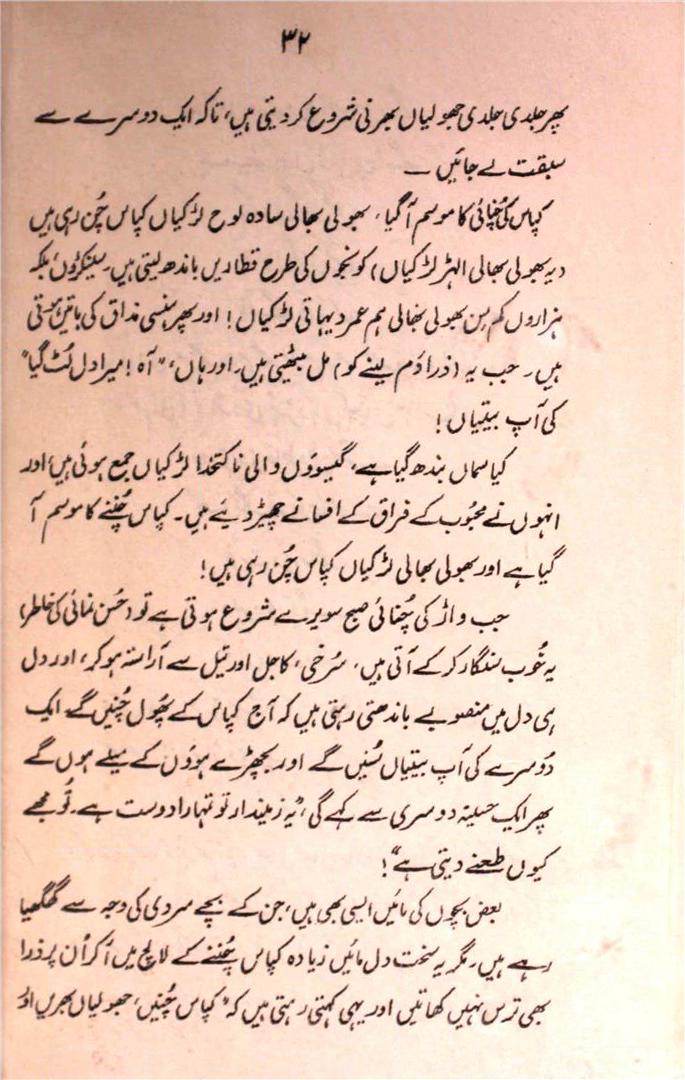 ۳۲
پھر جلدی جلدی جھولیاں بھرنی شروع کر دیتی ہیں، تاکہ ایک دوسرے سے
سبقت لے جائیں ۔
کپاس کی چُنائی کا موسم آ گیا، بھولی بھالی سادہ لوح لڑکیاں کپاس چُن رہی ہیں
(یہ بھولی بھالی الھڑ لڑکیاں) کونجوں کی طرح قطاریں باندھ لیتی ہیں۔ سینکڑوں، بلکہ
ہزاروں کم سِن بھولی بھالی ہم عمر دیہاتی لڑکیاں! اور پھر ہنسی مذاق کی باتیں ہوتی
ہیں۔ جب یہ (ذرا دَم لینے کو) مل بیٹھتی ہیں۔ اور ہاں، "آہ! میرا دل لُٹ گیا"
کی آپ بیتیاں!
کیا سماں بندھ گیا ہے، گیسوؤں والی ناکتخدا لڑکیاں جمع ہوئی ہیں، اور
انہوں نے محبُوب کے فراق کے افسانے چھیڑ دیئے ہیں۔ کپاس چُننے کا موسم آ
گیا ہے اور بھولی بھالی لڑکیاں کپاس چُن رہی ہیں!
جب واڑ کی چُنائی صبح سویرے شروع ہوتی ہے تو (حُسن نمائی کی خاطر)
یہ خُوب سنگار کر کے آتی ہیں، سُرخی، کاجل اور تیل سے آراستہ ہو کر، اور دل
ہی دل میں منصوبے باندھتی رہتی ہیں کہ آج کپاس کے پھُول چُنیں گے۔ ایک
دُوسرے کی آپ بیتیاں سُنیں گے اور بچھڑے ہوؤں کے میلے ہوں گے
پھر ایک حسینہ دوسری سے کہے گی، "یہ زمیندار تو تمہارا دوست ہے۔ تُو مجھے
کیوں طعنے دیتی ہے"!
بعض بچوں کی مائیں ایسی بھی ہیں، جن کے بچے سردی کی وجہ سے گھگھیا
رہے ہیں، مگر یہ سخت دل مائیں زیادہ کپاس چُننے کے لالچ میں آ کر اُن پر ذرا
بھی ترس نہیں کھاتیں اور یہی کہتی رہتی ہیں کہ "کپاس چُنیں، جھولیاں بھریں اور